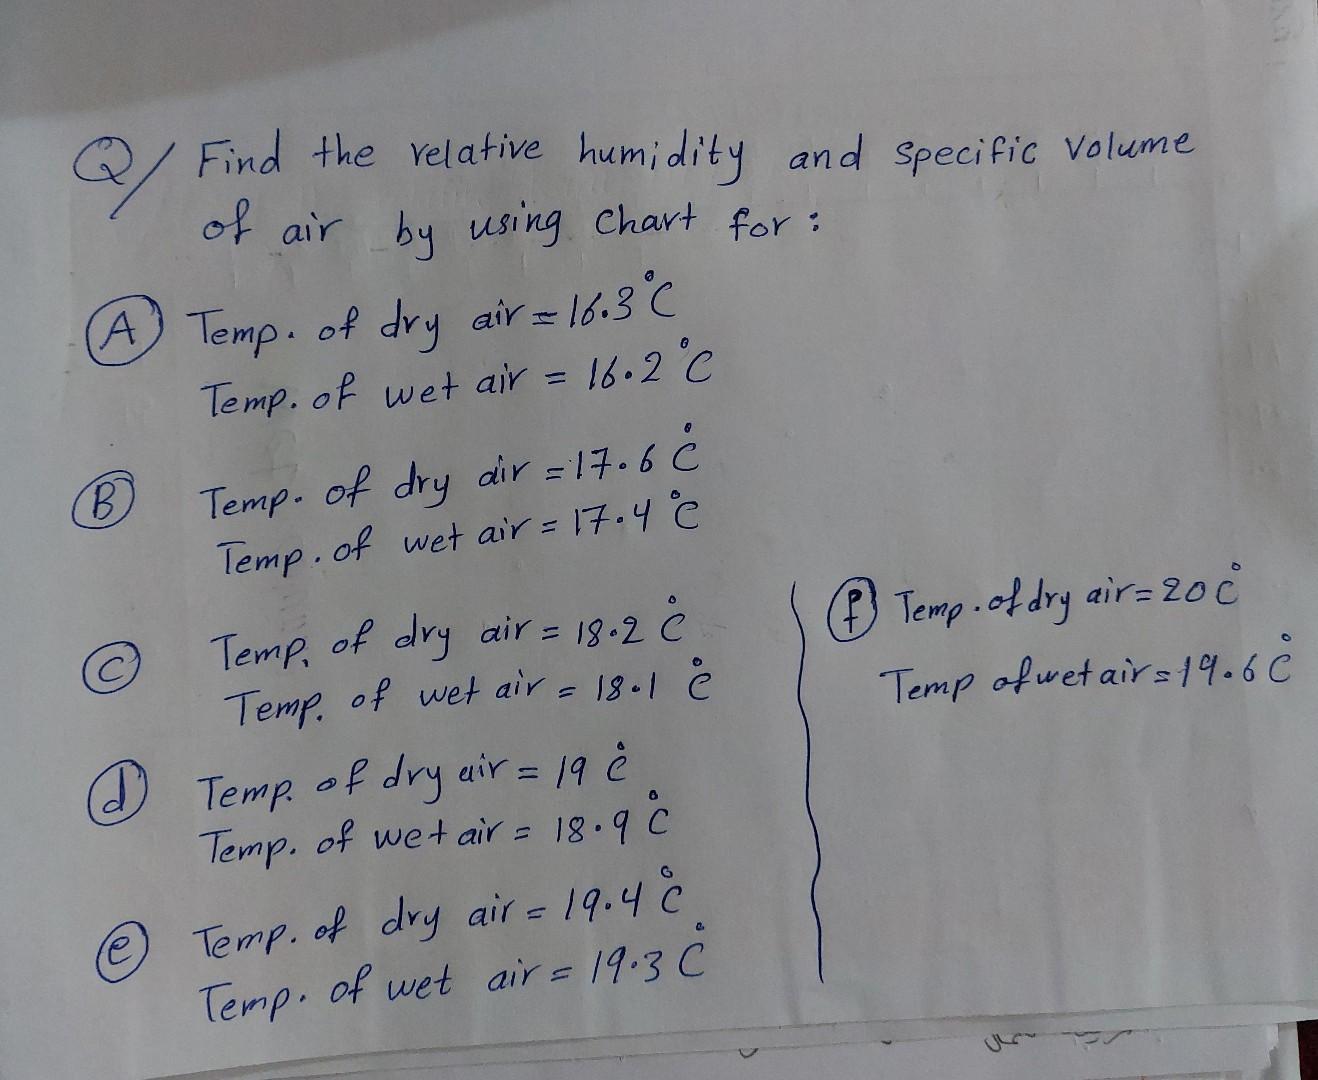 Q/ Find the relative humidity and specific volume
of air by using Chart for :
A Temp. of dry air = 16.3 °C
Temp. of wet air = 16.2 °C
B Temp. of dry air = 17.6 °C
Temp. of wet air = 17.4 °C
C Temp. of dry air = 18.2 °C
Temp. of wet air = 18.1 °C
d Temp. of dry air = 19 °C
Temp. of wet air = 18.9 °C
e Temp. of dry air = 19.4 °C
Temp. of wet air = 19.3 °C
f Temp. of dry air = 20 °C
Temp of wet air = 19.6 °C